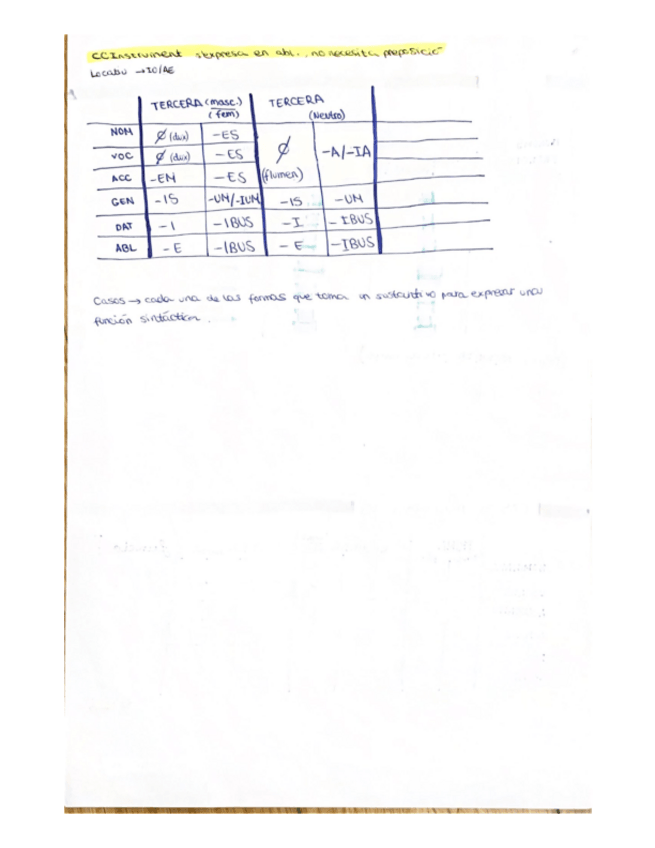 CC Instrument s'expresa en abl., no necesita preposició
Locatiu → IO/AE
TERCERA (masc.) TERCERA
(fem) (Neutro)
NOM Ø (dux) -ES Ø -A/-IA
VOC Ø (dux) -ES
ACC -EM -ES (flumen)
GEN -IS -UM/-IUM -IS -UM
DAT -I -IBUS -I -IBUS
ABL -E -IBUS -E -IBUS
Casos → cada una de las formas que toma un sustantivo para expresar una
función sintáctica.